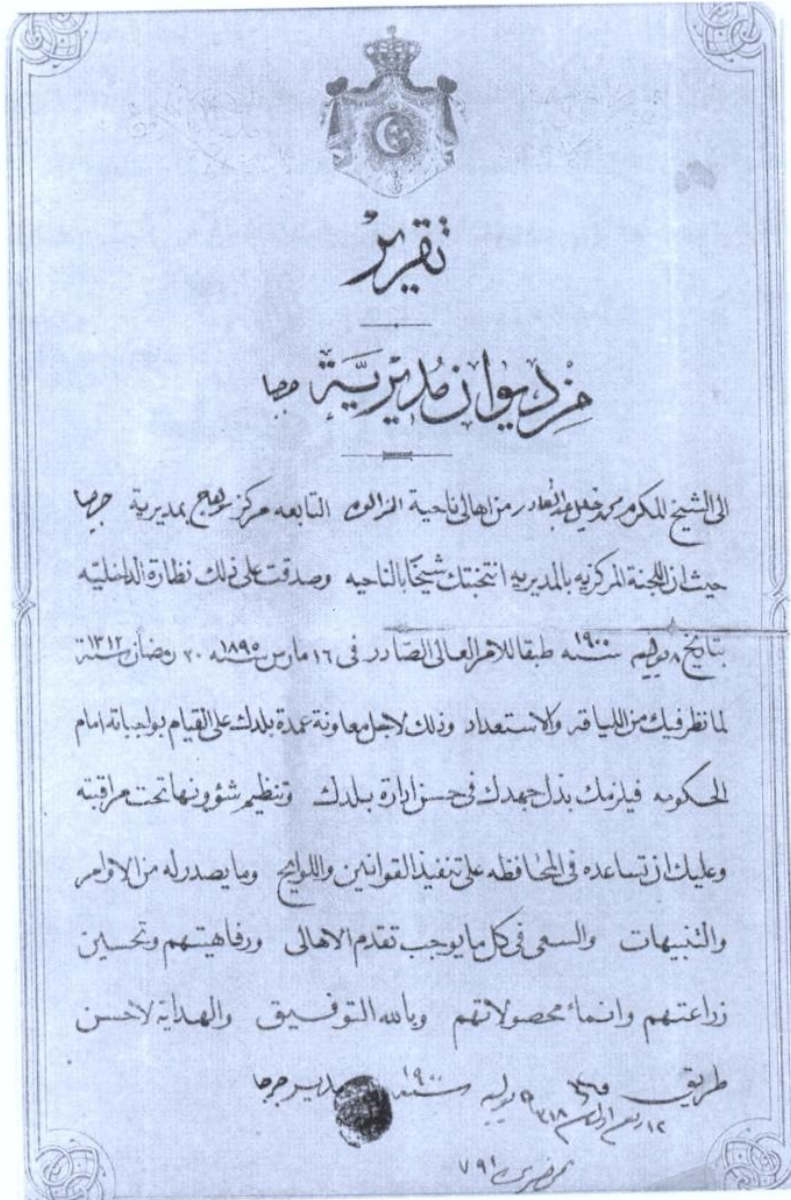 تقرير
من ديوان مديرية جرجا
الى الشيخ المكرم محمد خليل عبد القادر من اهالى ناحية التابعه مركز سوهاج بمديرية جرجا
حيث ان اللجنة المركزيه بالمديريه انتخبتك شيخًا بالناحيه وصدقت على ذلك نظارة الداخليّه
بتاريخ ٨ يوليه سنه ١٩٠٠ طبقا للامر العالى الصّادر فى ١٦ مارس سنه ١٨٩٥ ٢٠ رمضان سنة ١٣١٢
لما نظر فيك من اللياقه والاستعداد وذلك لاجل معاونة عمدة بلدك على القيام بواجباته امام
الحكومه فيلزمك بذل جهدك فى حسن ادارة بلدك وتنظيم شؤونها تحت مراقبته
وعليك ان تساعده فى المحافظه على تنفيذ القوانين واللوايح وما يصدر له من الاوامر
والتنبيهات والسعى فى كل ما يوجب تقدم الاهالى ورفاهيتهم وتحسين
زراعتهم وانماء محصولاتهم وبالله التوفيق والهداية لاحسن
طريق فى يوليه سنه ١٩٠٠ مدير جرجا
١٢ ربيع اول ١٣١٨
نمره ٧٩١